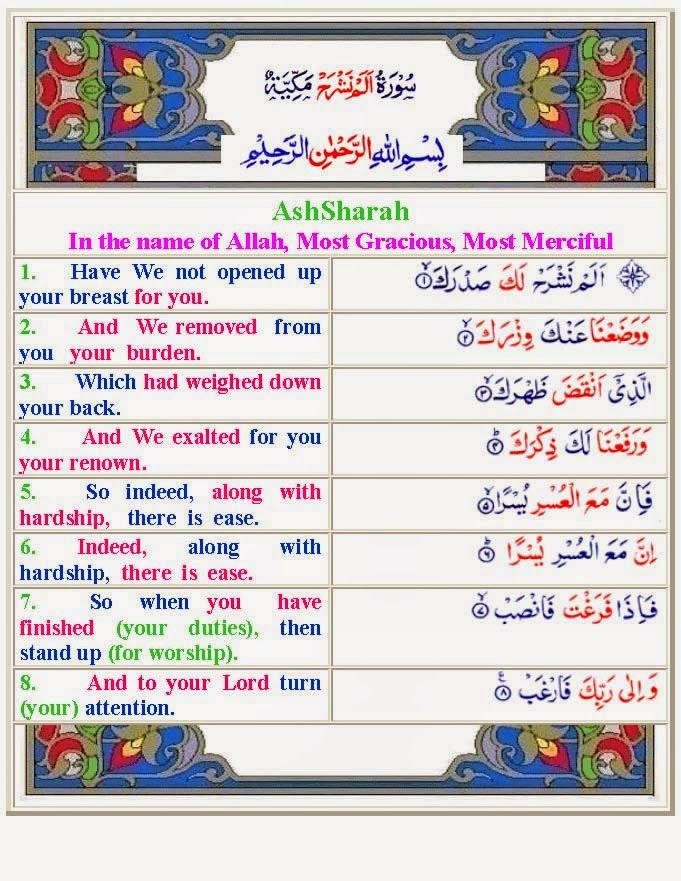 سُوْرَةُ اَلَمْ نَشْرَحْ مَكِّيَّةٌ
بِسْمِ اللّٰهِ الرَّحْمٰنِ الرَّحِيْمِ
AshSharah
In the name of Allah, Most Gracious, Most Merciful
1. Have We not opened up
your breast for you.
اَلَمْ نَشْرَحْ لَكَ صَدْرَكَ ۙ‏﴿۱﴾
2. And We removed from
you your burden.
وَوَضَعْنَا عَنْكَ وِزْرَكَ ۙ‏﴿۲﴾
3. Which had weighed down
your back.
الَّذِىْۤ اَنْقَضَ ظَهْرَكَ ۙ‏﴿۳﴾
4. And We exalted for you
your renown.
وَرَفَعْنَا لَكَ ذِكْرَكَ ؕ‏﴿۴﴾
5. So indeed, along with
hardship, there is ease.
فَاِنَّ مَعَ الْعُسْرِ يُسْرًا ۙ‏﴿۵﴾
6. Indeed, along with
hardship, there is ease.
اِنَّ مَعَ الْعُسْرِ يُسْرًا ؕ‏﴿۶﴾
7. So when you have
finished (your duties), then
stand up (for worship).
فَاِذَا فَرَغْتَ فَانْصَبْ ۙ‏﴿۷﴾
8. And to your Lord turn
(your) attention.
وَاِلٰى رَبِّكَ فَارْغَبْ ‏﴿۸﴾